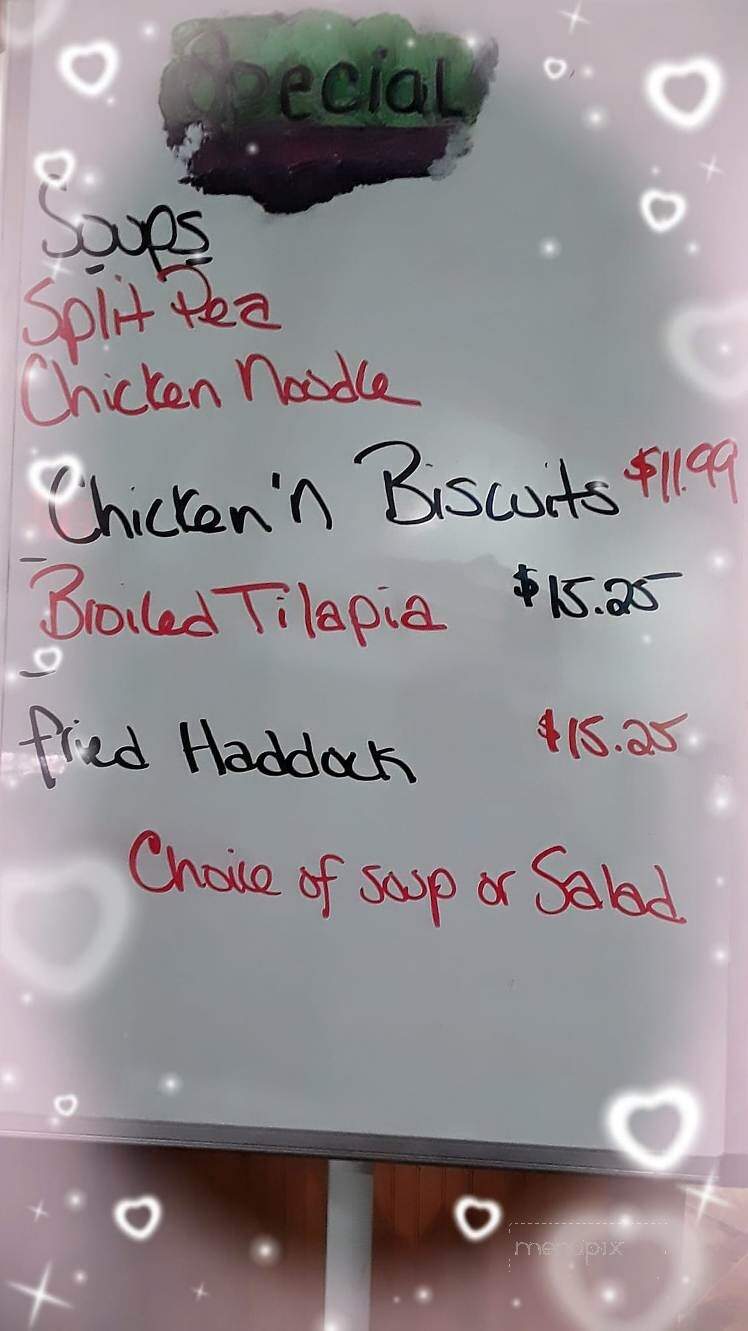 Special
Soups
Split Pea
Chicken Noodle
Chicken'n Biscuits $11.99
Broiled Tilapia $15.25
fried Haddock $15.25
Choice of soup or Salad
menupix